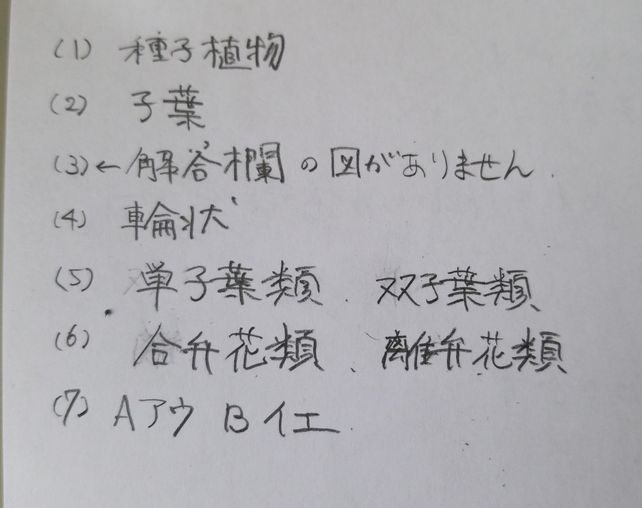 (1) 種子植物
(2) 子葉
(3)←解答欄の図がありません.
(4) 輪状
(5) 単子葉類、双子葉類
(6) 合弁花類、離弁花類
(7) Aアウ Bイエ